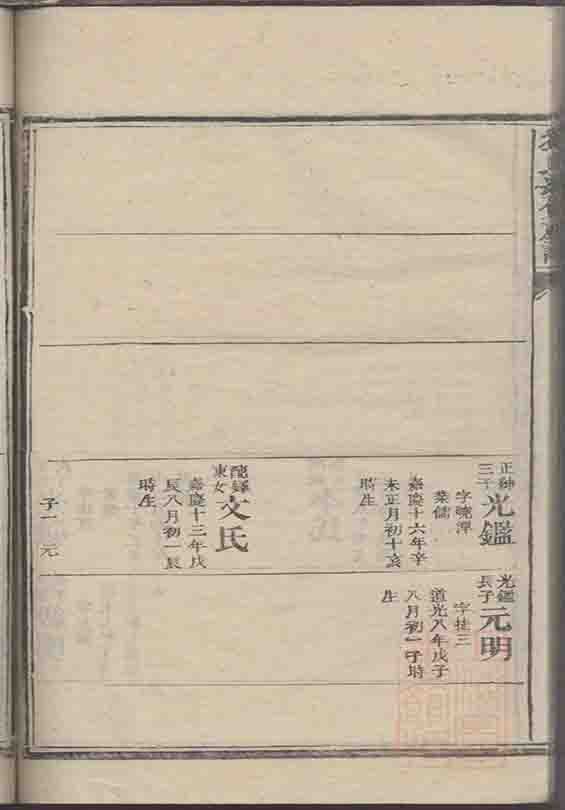 正紳三子光鑑
字曉潭
業儒
嘉慶十六年辛
未正月初十亥
時生
醴驛東女文氏
嘉慶十三年戊
辰八月初一辰
時生
子一元
光鑑長子元明
字桂三
道光八年戊子
八月初一子時
生